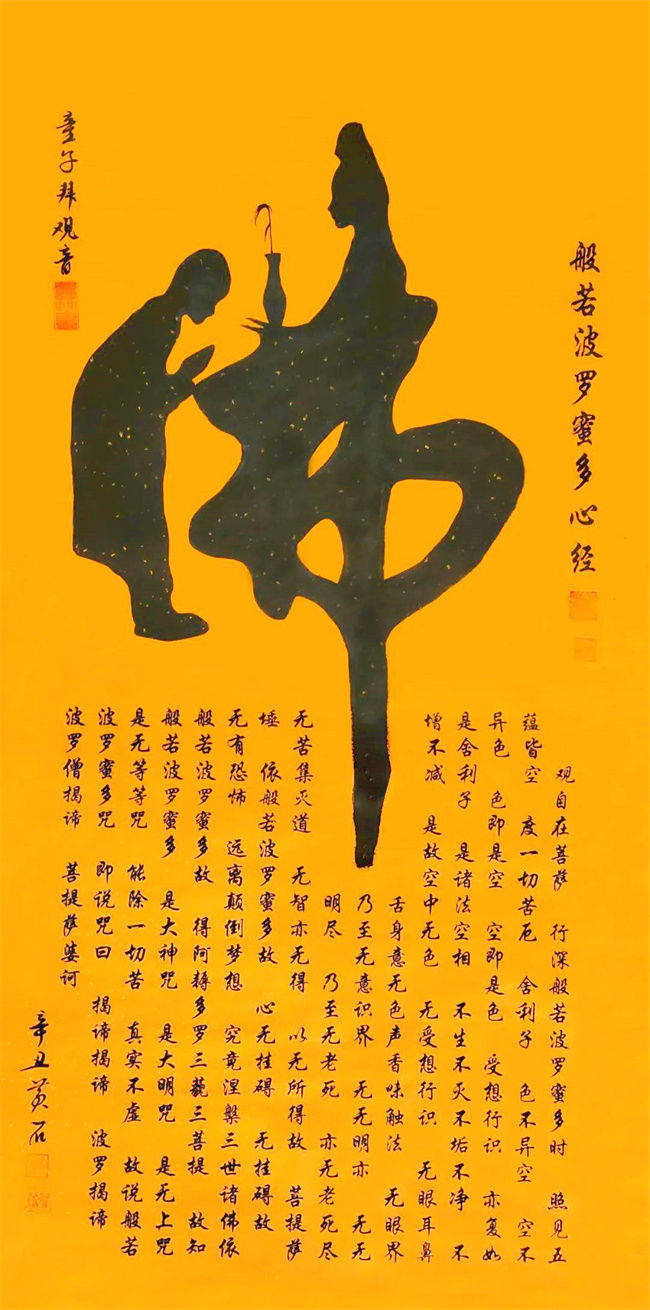 般若波罗蜜多心经
佛
童子拜观音
观自在菩萨 行深般若波罗蜜多时 照见五
蕴皆空 度一切苦厄 舍利子 色不异空 空不
异色 色即是空 空即是色 受想行识 亦复如
是舍利子 是诸法空相 不生不灭不垢不净 不
增不减 是故空中无色 无受想行识 无眼耳鼻
舌身意无色声香味触法 无眼界
乃至无意识界 无无明亦 无无
明尽 乃至无老死 亦无老死尽
无苦集灭道 无智亦无得 以无所得故 菩提萨
埵 依般若波罗蜜多故 心无挂碍 无挂碍故
无有恐怖 远离颠倒梦想 究竟涅槃三世诸佛依
般若波罗蜜多故 得阿耨多罗三藐三菩提 故知
般若波罗蜜多 是大神咒 是大明咒 是无上咒
是无等等咒 能除一切苦 真实不虚 故说般若
波罗蜜多咒 即说咒曰 揭谛揭谛 波罗揭谛
波罗僧揭谛 菩提萨婆诃
辛丑黄石